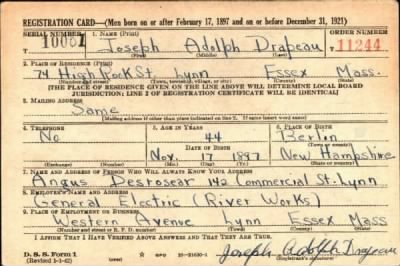 REGISTRATION CARD—(Men born on or after February 17, 1897 and on or before December 31, 1921)
SERIAL NUMBER 1. NAME (Print) ORDER NUMBER
10061 Joseph Adolph Drapeau 11244
(First) (Middle) (Last)
2. PLACE OF RESIDENCE (Print)
74 High Rock St. Lynn Essex Mass.
(Number and street) (Town, township, village, or city) (County) (State)
[THE PLACE OF RESIDENCE GIVEN ON THE LINE ABOVE WILL DETERMINE LOCAL BOARD
JURISDICTION; LINE 2 OF REGISTRATION CERTIFICATE WILL BE IDENTICAL]
3. MAILING ADDRESS
Same
[Mailing address if other than place indicated on line 2. If same insert word same]
4. TELEPHONE 5. AGE IN YEARS 6. PLACE OF BIRTH
No 44 Berlin
DATE OF BIRTH (Town or county)
Nov. 17 1897 New Hampshire
(Exchange) (Number) (Mo.) (Day) (Yr.) (State or country)
7. NAME AND ADDRESS OF PERSON WHO WILL ALWAYS KNOW YOUR ADDRESS
Angus Desrosear 142 Commercial St. Lynn
8. EMPLOYER'S NAME AND ADDRESS
General Electric (River Works)
9. PLACE OF EMPLOYMENT OR BUSINESS
Western Avenue Lynn Essex Mass
(Number and street or R. F. D. number) (Town) (County) (State)
I AFFIRM THAT I HAVE VERIFIED ABOVE ANSWERS AND THAT THEY ARE TRUE.
D. S. S. Form 1
(Revised 1-1-42) (over) GPO 16-21630-1 Joseph Adolph Drapeau